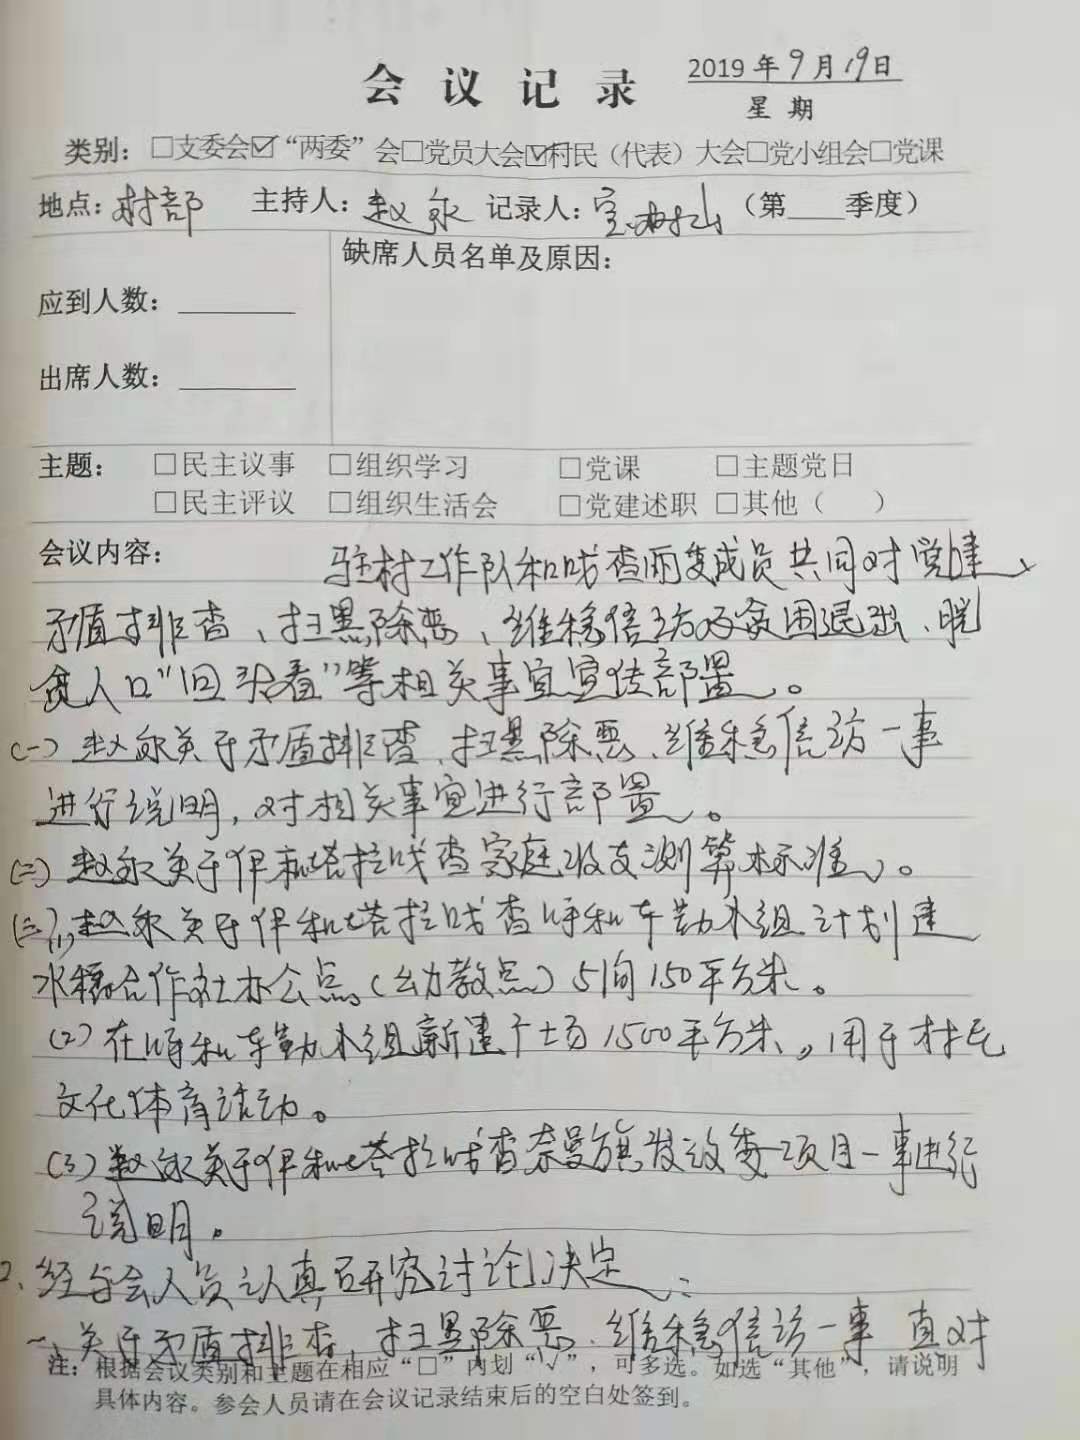 会议记录
2019年9月19日
星期
类别：□支委会☑“两委”会□党员大会☑村民（代表）大会□党小组会□党课
地点：村部 主持人：赵永 记录人：宝山 （第____季度）
缺席人员名单及原因：
应到人数：
出席人数：
主题： □民主议事 □组织学习 □党课 □主题党日
□民主评议 □组织生活会 □党建述职 □其他（ ）
会议内容：
驻村工作队和嘎查两委成员共同对党建、
矛盾排查、扫黑除恶、维稳信访及贫困退出、脱
贫人口“回头看”等相关事宜宣传部置。
(一)赵永关于矛盾排查、扫黑除恶、维稳信访一事
进行说明，对相关事宜进行部置。
(二)赵永关于伊和塔拉嘎查家庭收支测算标准。
(三)，(1)赵永关于伊和塔拉嘎查 小组计划建
水稻合作社办公点（幼教点）5间150平方米。
(2)在 小组新建广场1500平方米，用于村民
文化体育活动。
(3)赵永关于伊和塔拉嘎查奈曼旗发改委项目一事进行
说明。
2、经与会人员认真研究讨论决定：
一、关于矛盾排查，扫黑除恶、维稳信访一事 直对
注：根据会议类别和主题在相应“□”内划“√”，可多选。如选“其他”，请说明
具体内容。参会人员请在会议记录结束后的空白处签到。